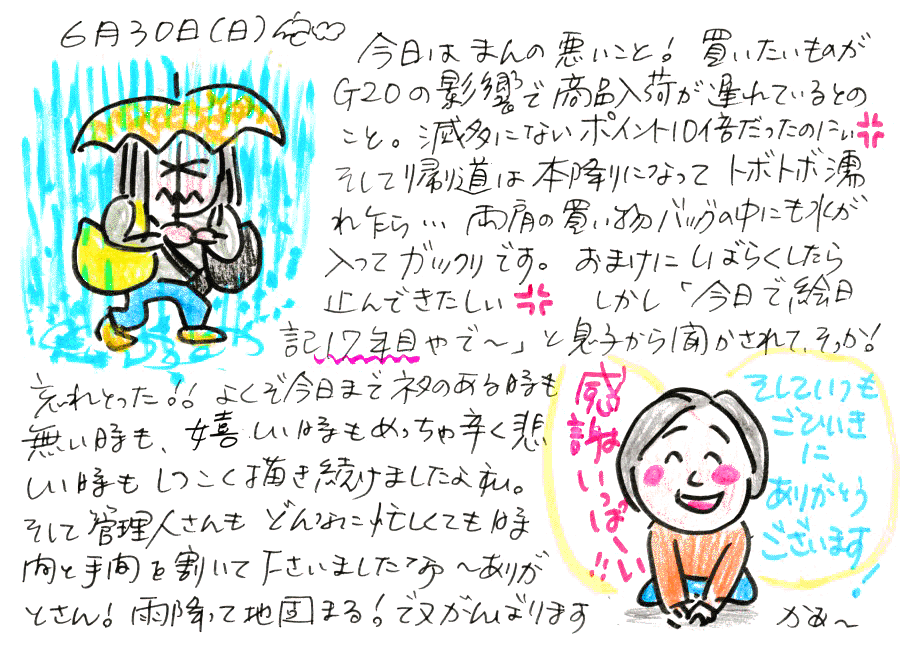 6月30日(日)
今日は まんの悪いこと! 買いたいものが
G20の影響で商品入荷が遅れているとの
こと。滅多にないポイント10倍だったのにぃ
そして帰り道は本降りになって トボトボ濡
れたら… 両肩の買い物バッグの中にも水が
入ってガックリです。 おまけにしばらくしたら
止んできたしぃ しかし「今日で絵日
記17年目やで〜」と息子から聞かされて、そっか!
忘れとった!! よくぞ今日までネタのある時も
無い時も、嬉しい時もめっちゃ辛く悲
しい時もしつこく描き続けましたよね。
そして管理人さんも どんなに忙しくても時
間と手間を割いて下さいましたなあ〜ありが
とさん! 雨降って地固まる!で又がんばります
かあ〜
感謝はいっぱ〜い!!
そしていつも
ごひいき
に
ありがとう
ございます!